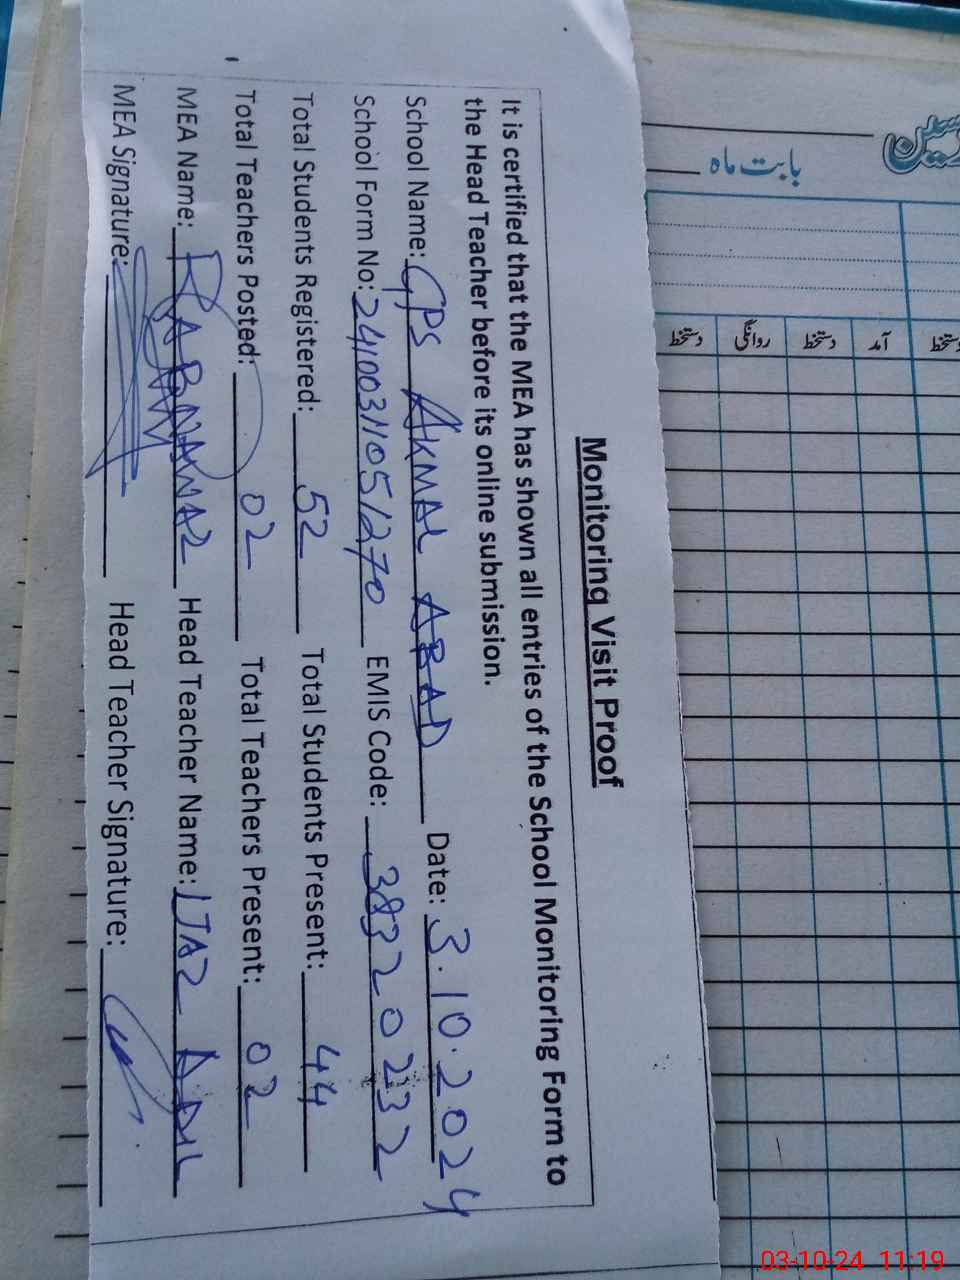 Monitoring Visit Proof
It is certified that the MEA has shown all entries of the School Monitoring Form to
the Head Teacher before its online submission.
School Name: GPS AKMAL ABAD Date: 3.10.2024
School Form No: 24100311051270 EMIS Code: 38320232
Total Students Registered: 52 Total Students Present: 44
Total Teachers Posted: 02 Total Teachers Present: 02
MEA Name: RAB NAWAZ Head Teacher Name: IJAZ ADIL
MEA Signature: Head Teacher Signature:
بابت ماہ
دستخط آمد دستخط روانگی دستخط
03-10-24 11:19